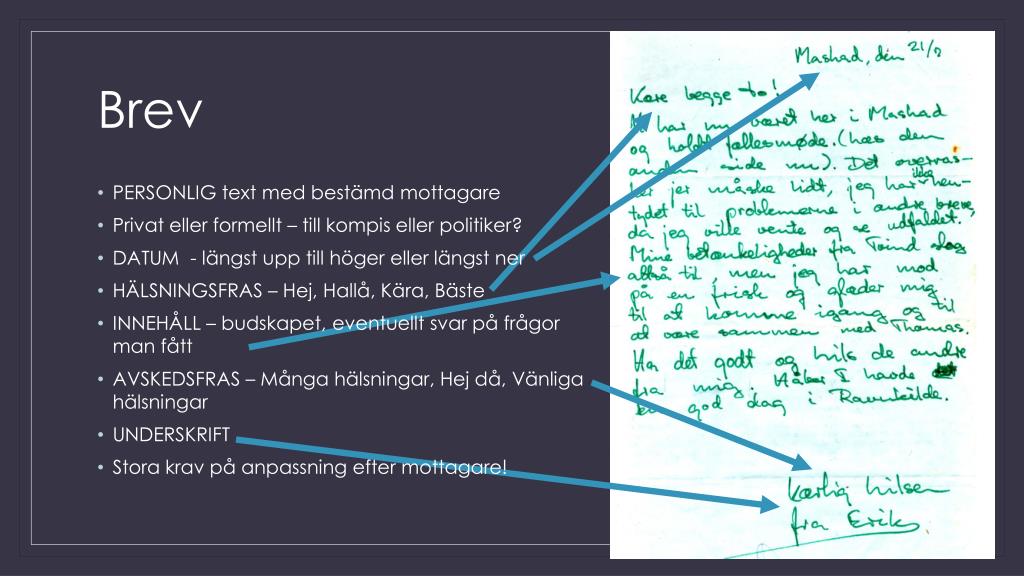 Brev
• PERSONLIG text med bestämd mottagare
• Privat eller formellt – till kompis eller politiker?
• DATUM - längst upp till höger eller längst ner
• HÄLSNINGSFRAS – Hej, Hallå, Kära, Bäste
• INNEHÅLL – budskapet, eventuellt svar på frågor
man fått
• AVSKEDSFRAS – Många hälsningar, Hej då, Vänliga
hälsningar
• UNDERSKRIFT
• Stora krav på anpassning efter mottagare!
Mashad, den 21/
Kære begge to!
har nu været her i Mashad
og holdt fællesmøde. (hos den
anden side nu). Det overras-
jer måske lidt, jeg har ikke hen-
tydet til problemerne i andre breve,
da jeg ville vente og se udfaldet.
Mine betænkeligheder fra Toind slog
altså til, men jeg har mod
på en frisk og glæder mig
til at komme igang og til
at være sammen med Thomas.
Ha det godt og hils de andre
fra mig. Håber I havde
en god dag i Ravnkilde.
Kærlig hilsen
fra Erik